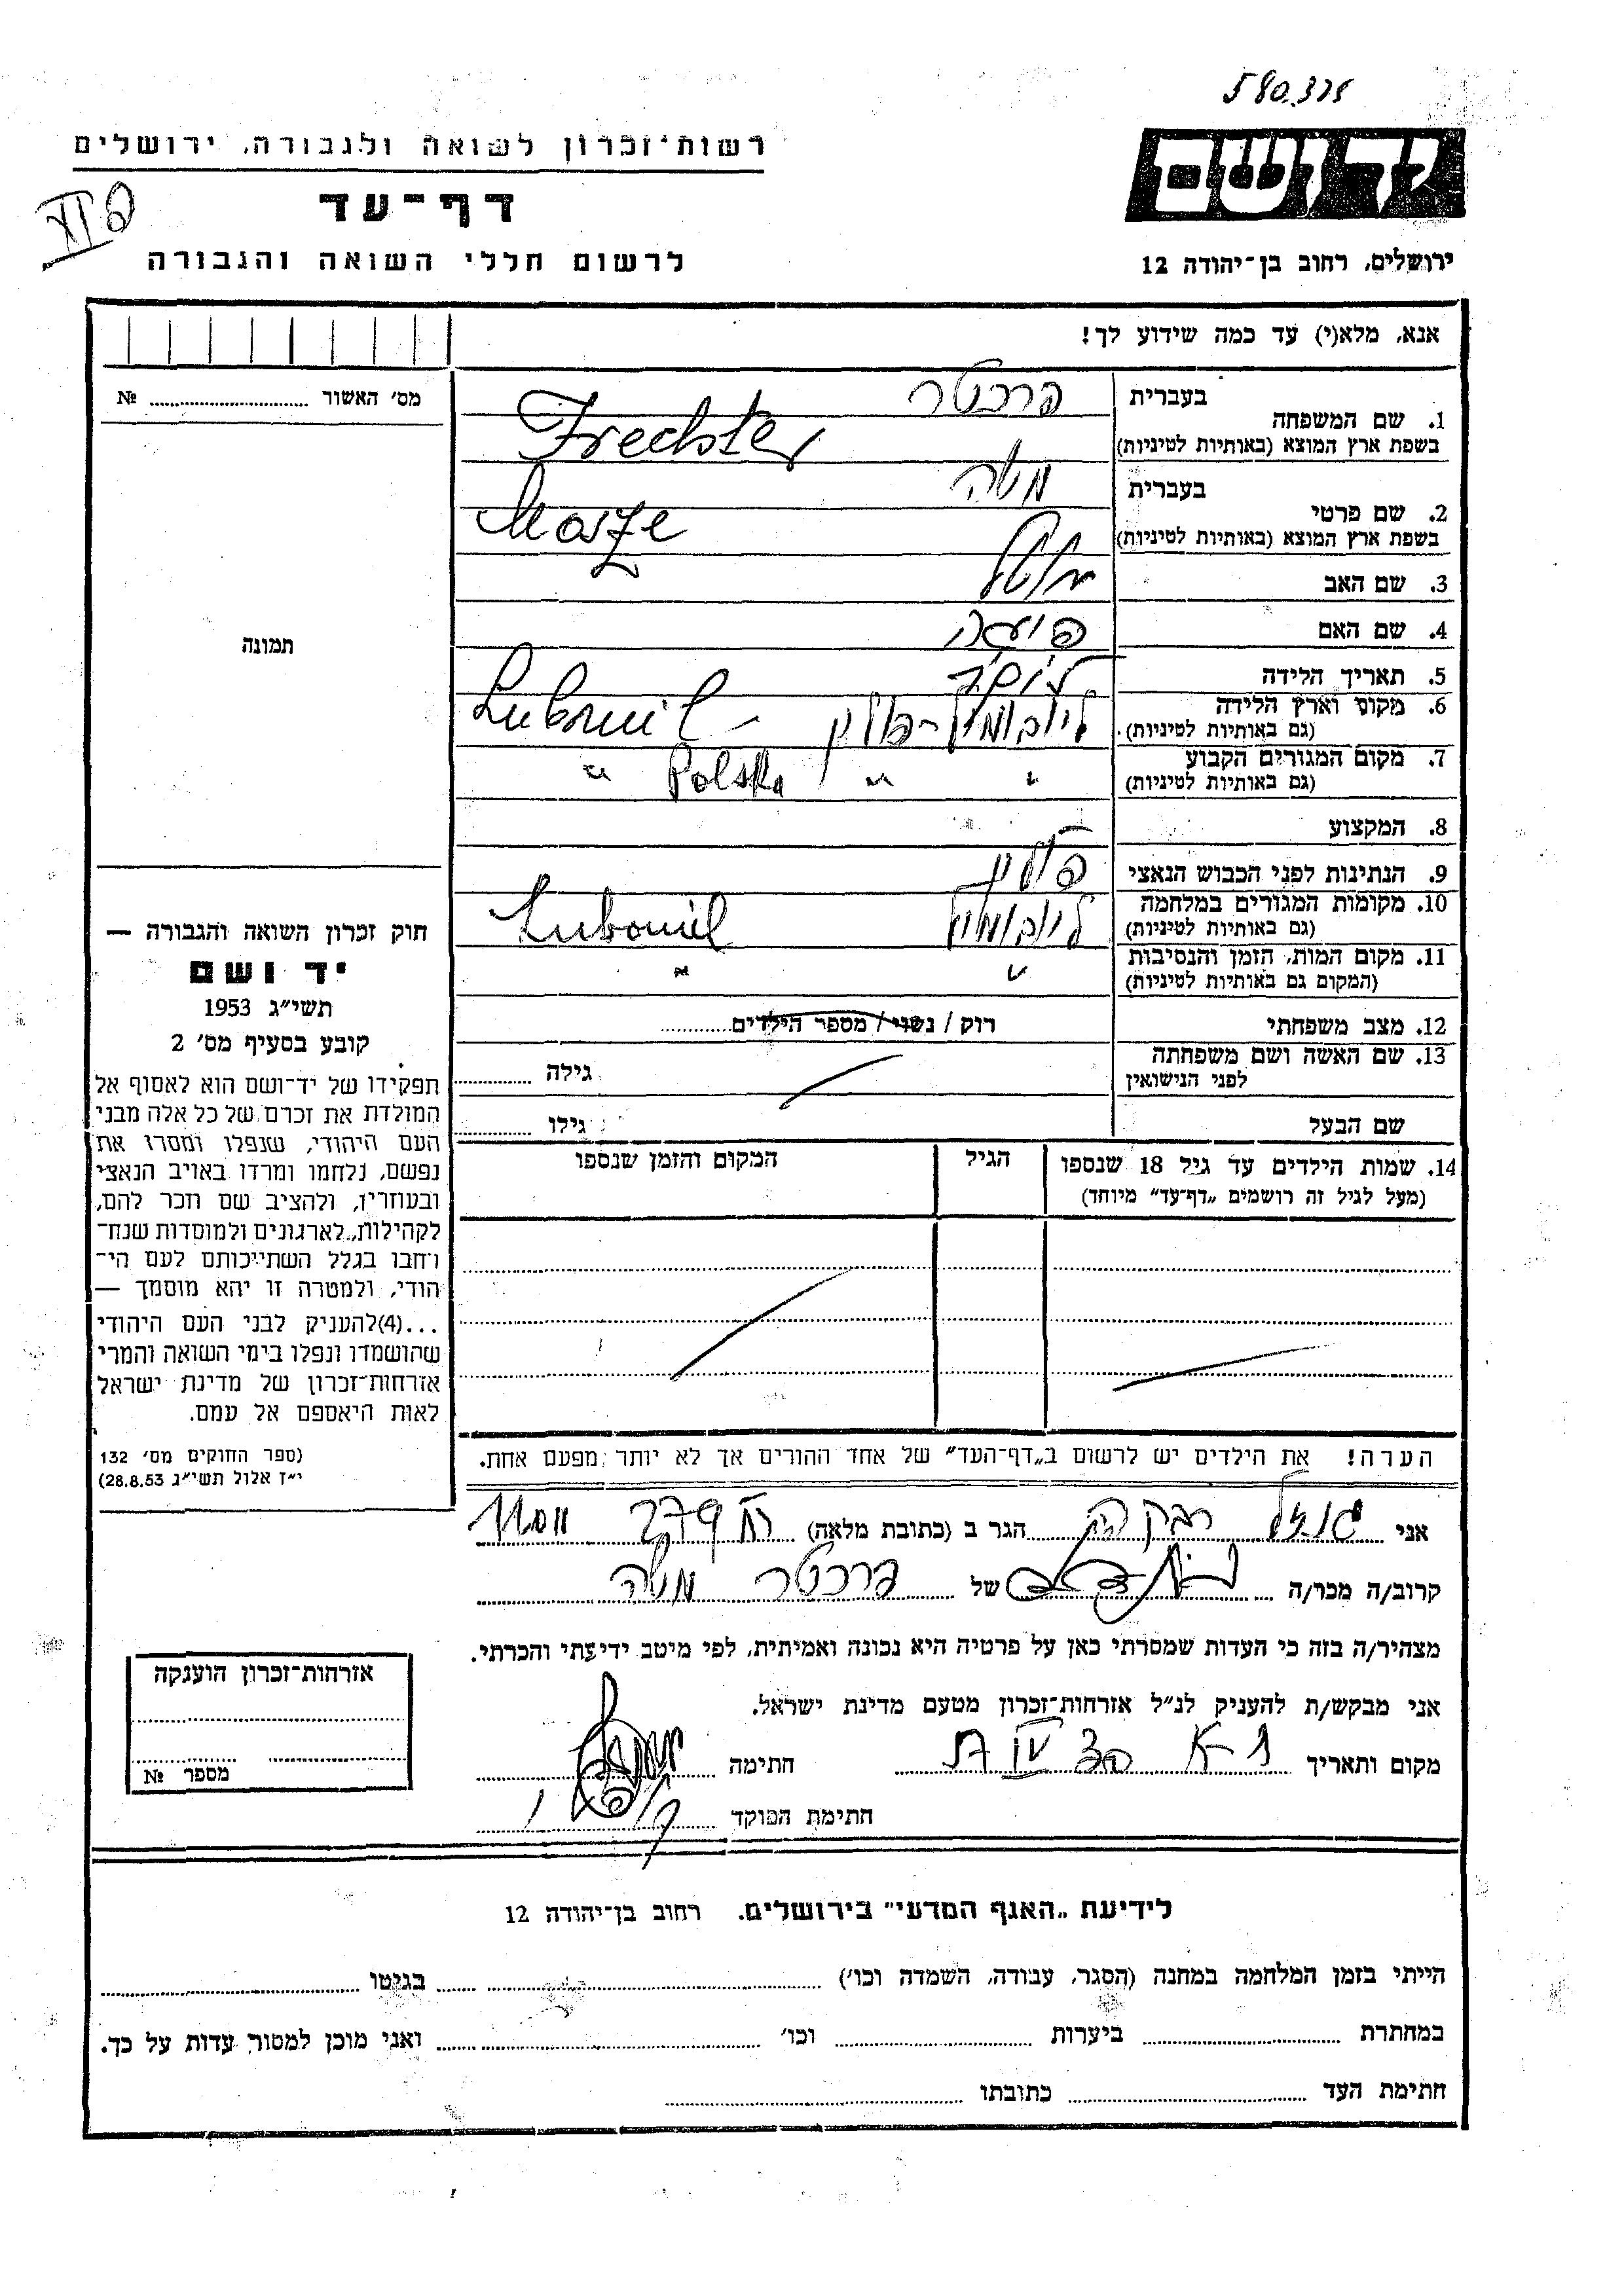 580.325
רשות־זכרון לשואה ולגבורה, ירושלים
דף־עד
לרשום חללי השואה והגבורה
יד ושם
ירושלים, רחוב בן־יהודה 12
אנא, מלא(י) עד כמה שידוע לך!
מס׳ האשור ........................ №
תמונה
חוק זכרון השואה והגבורה —
יד ושם
תשי״ג 1953
קובע בסעיף מס׳ 2
תפקידו של יד־ושם הוא לאסוף אל
המולדת את זכרם של כל אלה מבני
העם היהודי, שנפלו ומסרו את
נפשם, נלחמו ומרדו באויב הנאצי
ובעוזריו, ולהציב שם וזכר להם,
לקהילות, לארגונים ולמוסדות שנח־
רחבו בגלל השתייכותם לעם הי־
הודי, ולמטרה זו יהא מוסמך —
...(4)להעניק לבני העם היהודי
שהושמדו ונפלו בימי השואה והמרי
אזרחות־זכרון של מדינת ישראל
לאות היאספם אל עמם.
(ספר החוקים מס׳ 132
י״ז אלול תשי״ג 28.8.53)
בעברית פרכטר
1. שם המשפחה
בשפת ארץ המוצא (באותיות לטיניות) Frechter
בעברית משה
2. שם פרטי
בשפת ארץ המוצא (באותיות לטיניות) Mosze
3. שם האב
4. שם האם
5. תאריך הלידה
6. מקום וארץ הלידה ליובומיל-פולין Luboml
(גם באותיות לטיניות)
7. מקום המגורים הקבוע " " Polska "
(גם באותיות לטיניות)
8. המקצוע
9. הנתינות לפני הכבוש הנאצי פולין
10. מקומות המגורים במלחמה ליובומיל Luboml
(גם באותיות לטיניות)
11. מקום המות, הזמן והנסיבות " "
(המקום גם באותיות לטיניות)
12. מצב משפחתי רוק / נשוי / מספר הילדים
13. שם האשה ושם משפחתה גילה
לפני הנישואין
שם הבעל גילו
14. שמות הילדים עד גיל 18 שנספו הגיל המקום והזמן שנספו
(מעל לגיל זה רושמים „דף־עד״ מיוחד)
הערה! את הילדים יש לרשום ב„דף־העד״ של אחד ההורים אך לא יותר מפעם אחת.
אני רבקה הגר ב (כתובת מלאה)
קרוב/ה מכר/ה של פרכטר משה
מצהיר/ה בזה כי העדות שמסרתי כאן על פרטיה היא נכונה ואמיתית, לפי מיטב ידיעתי והכרתי.
אני מבקש/ת להעניק לנ״ל אזרחות־זכרון מטעם מדינת ישראל.
מקום ותאריך חתימה
חתימת הפוקד
אזרחות־זכרון הוענקה
מספר №
לידיעת „האגף המדעי״ בירושלים. רחוב בן־יהודה 12
הייתי בזמן המלחמה במחנה (הסגר, עבודה, השמדה וכו׳) בגיטו
במחתרת ביערות וכו׳ ואני מוכן למסור עדות על כך.
חתימת העד כתובתו